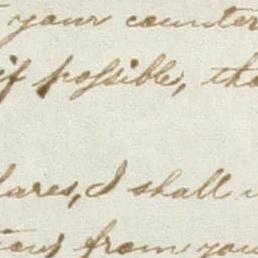 your counter
if poſsible, tha
lares, I shall
from you